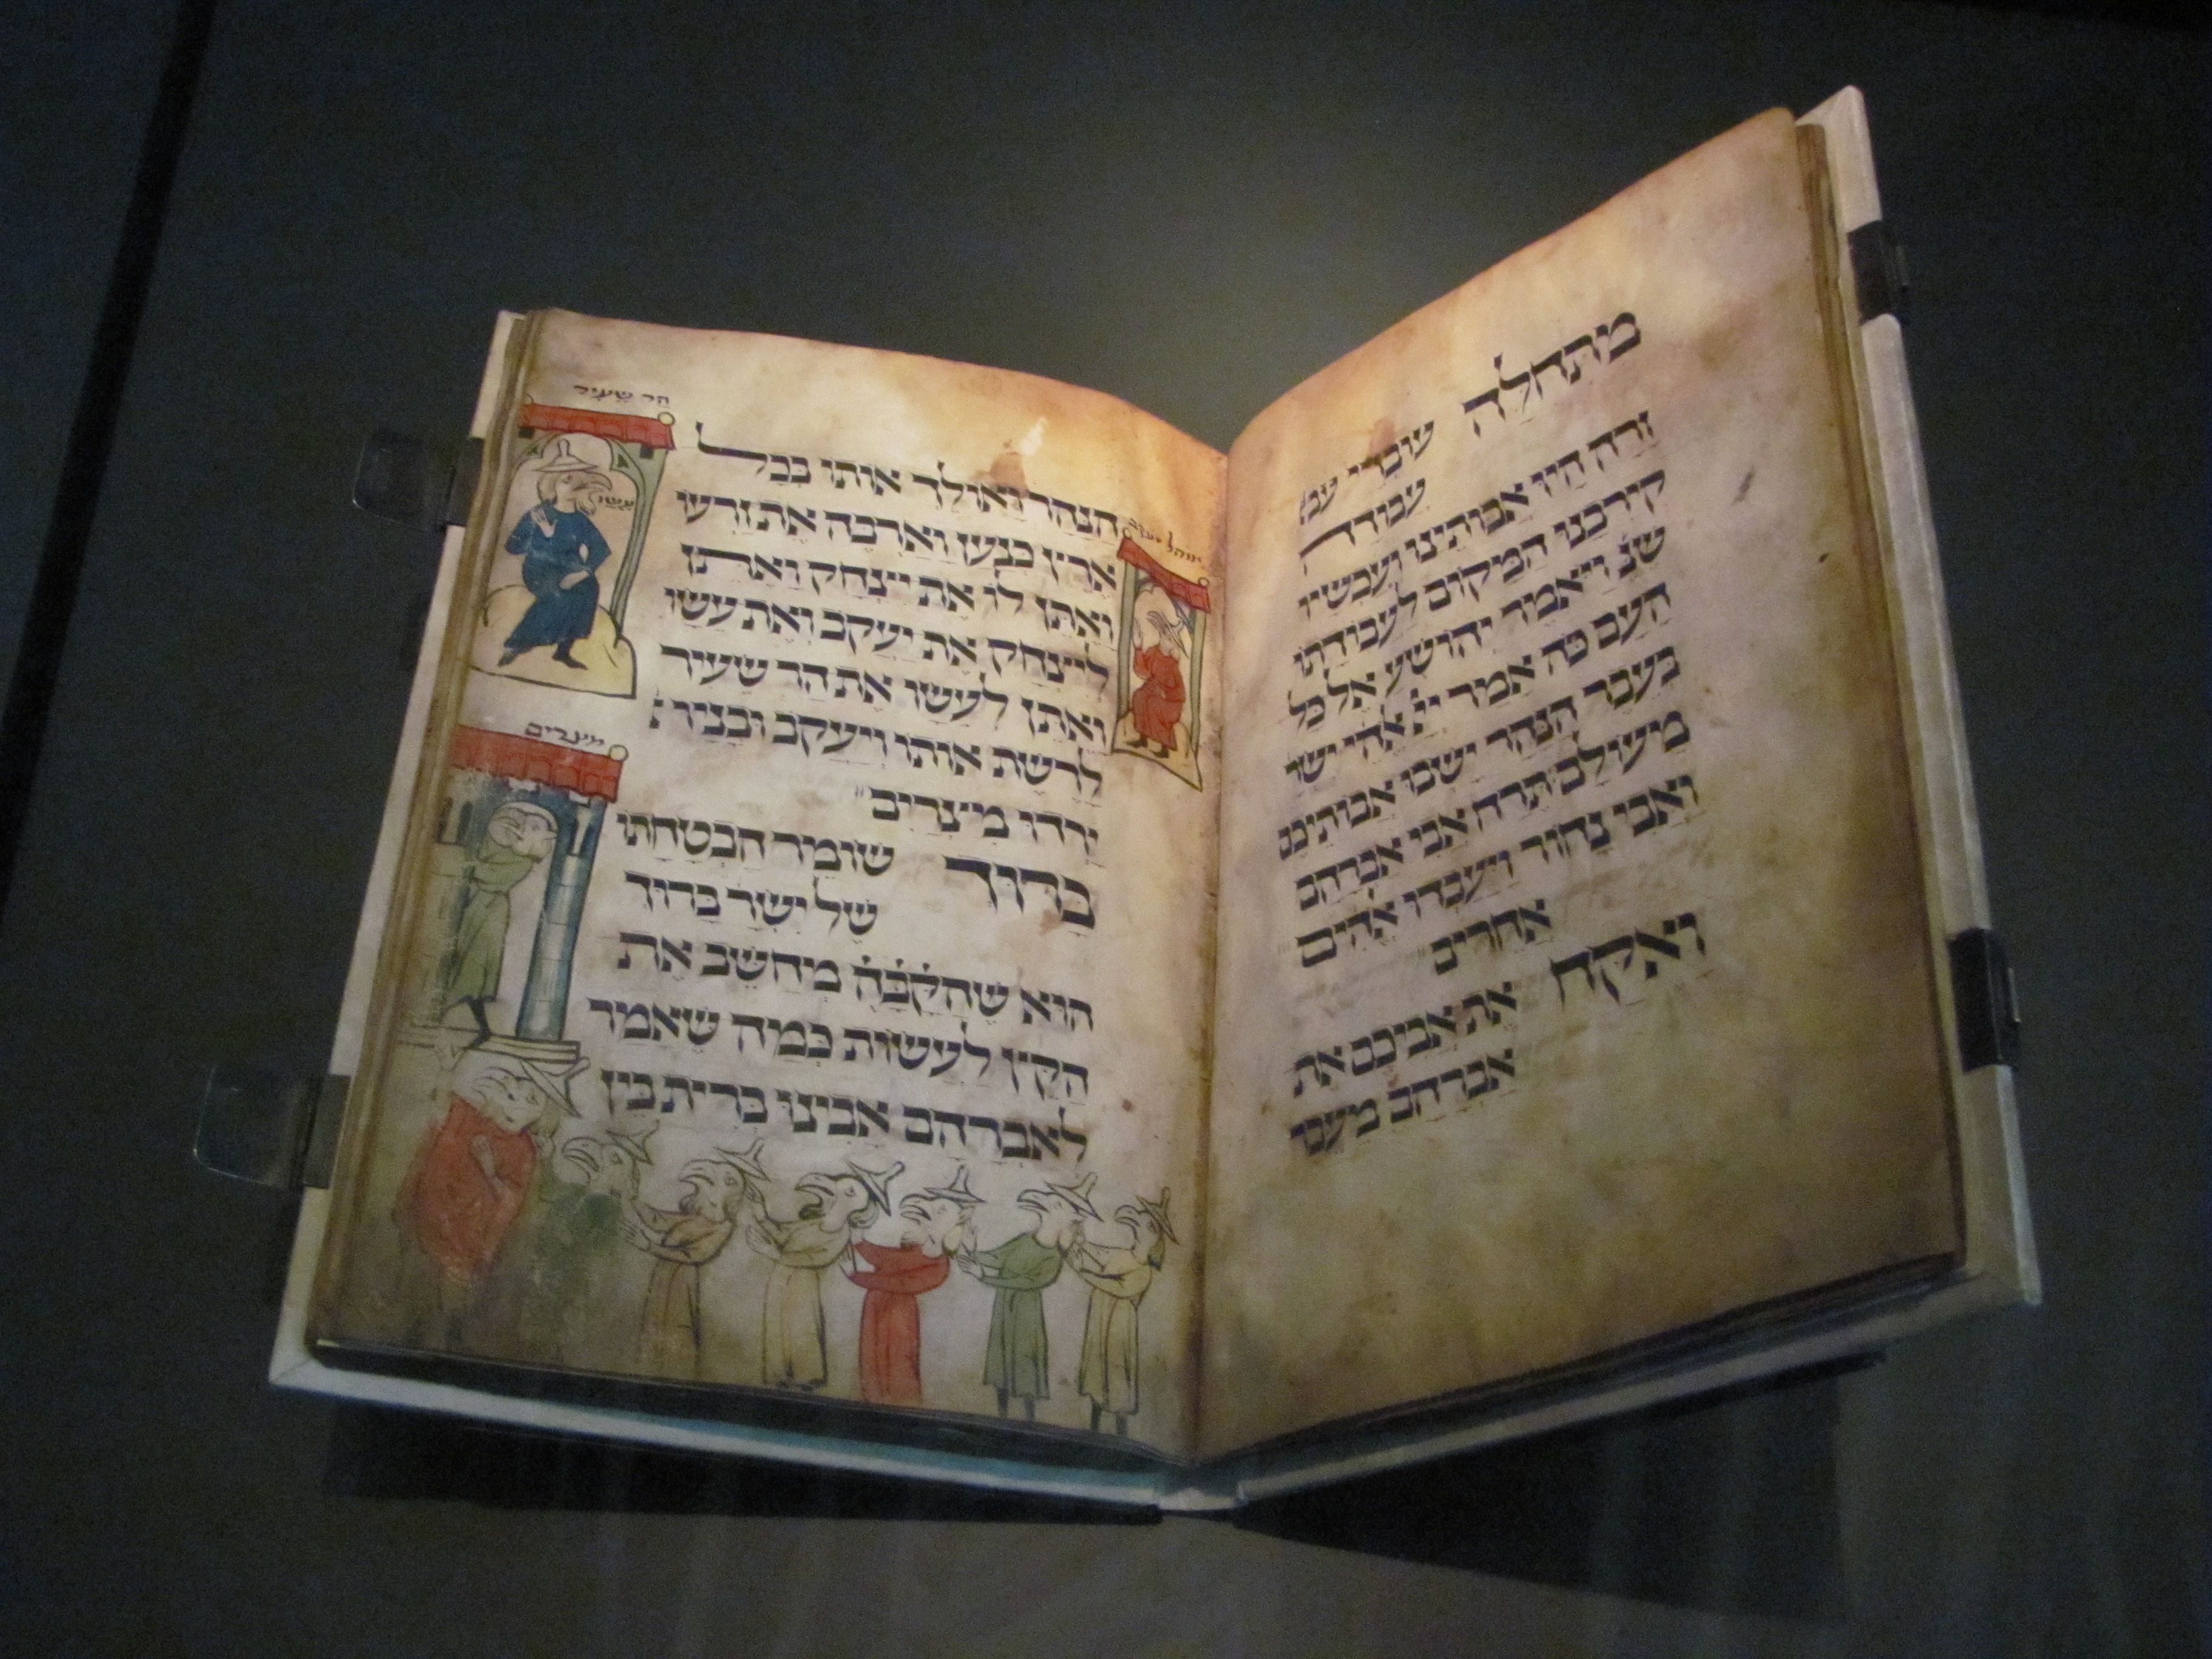 מתחלה
עובדי עב
עבודה
זרה היו אבותינו ועכשיו
קירבנו המקום לעבודתו
שנ וייאמר יהושע אל כל
העם כה אמר ייָ אלהי ישר
בעבר הנהר ישבו אבותיכם
מעולם תרח אבי אברהם
ואבי נחור ויעבדו אלהים
אחרים
ואקח את אביכם את
אברהם מעבר
הר שעיר
עשו
הנהר ואולך אותו בכל
ארץ כנען וארבה את זרעו
ואתן לו את ייצחק ואתן
לייצחק את יעקב ואת עשו
ואתן לעשו את הר שעיר
לרשת אותו ויעקב ובניו
ירדו מיצרים
מיצרים
ברוך שומר הבטחתו
של ישר ברוך
הוא שהקבה מחשב את
הקץ לעשות כמה שאמר
לאברהם אבינו ברית בין